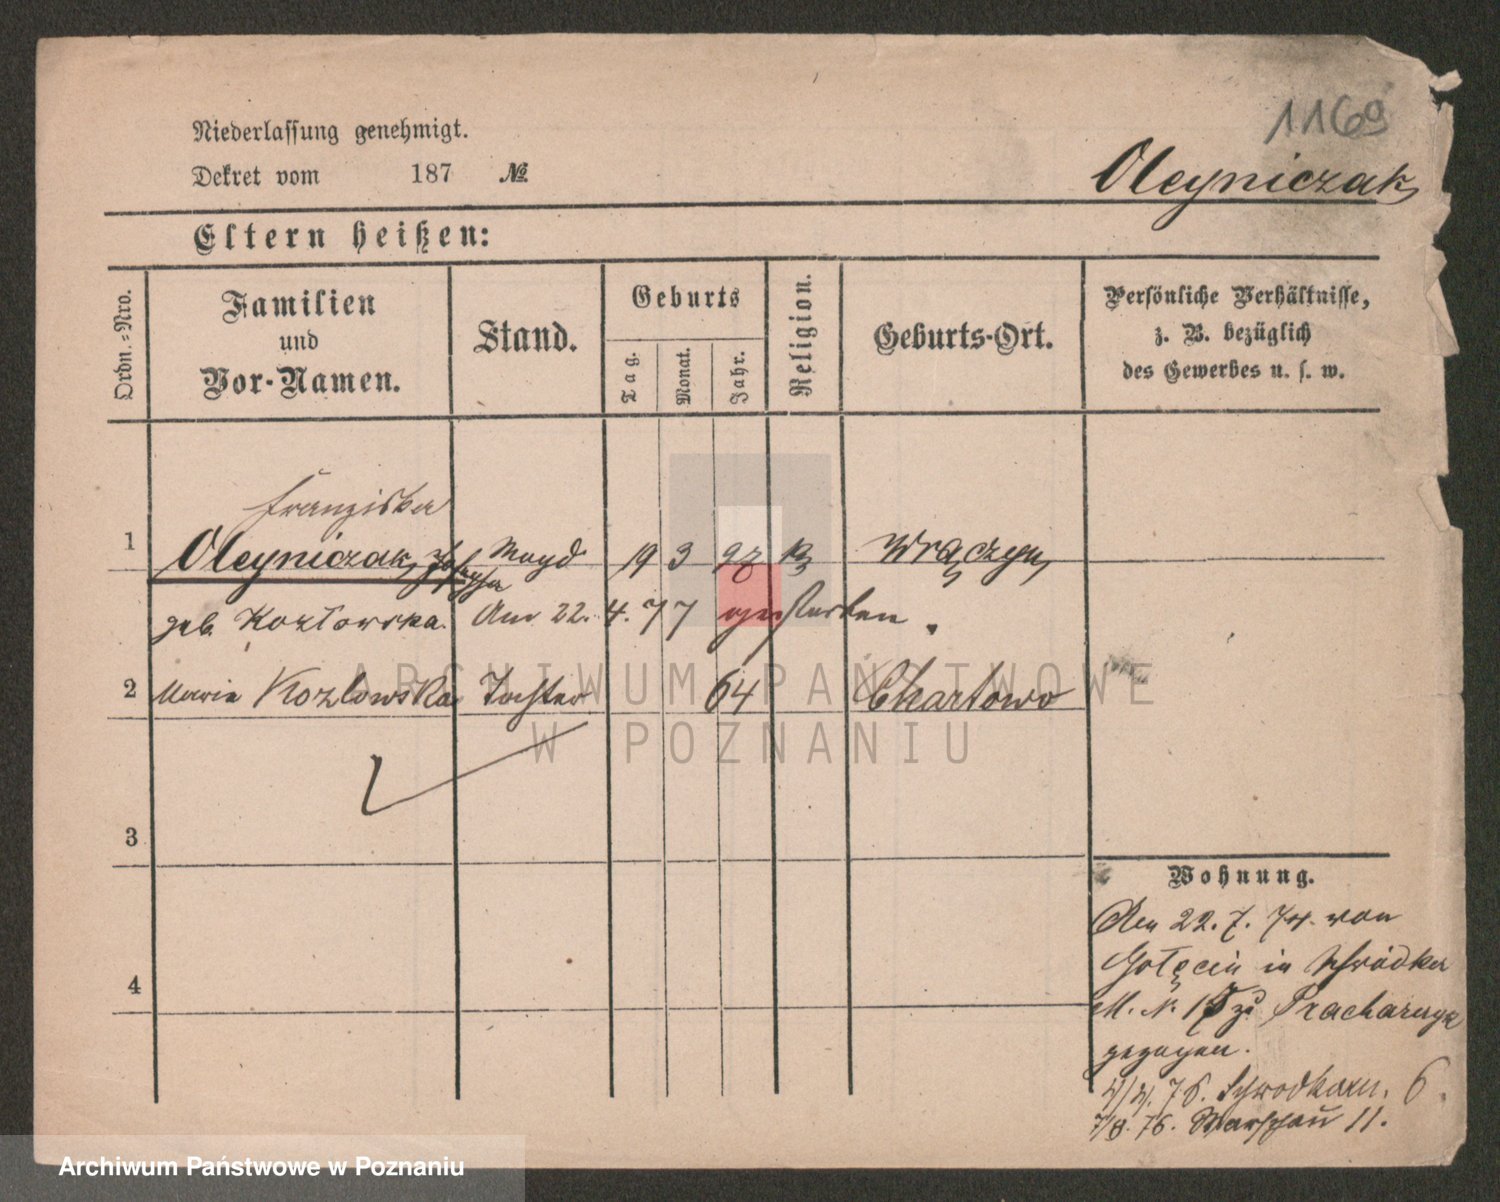 1169
Niederlassung genehmigt.
Dekret vom 187 №
Oleyniczak
Eltern heißen:
Ordn.-Nro.
Familien
und
Vor-Namen.
Stand.
Geburts
Tag.
Monat.
Jahr.
Religion.
Geburts-Ort.
Persönliche Verhältnisse,
z. B. bezüglich
des Gewerbes u. s. w.
Franziska
1 Oleyniczak, Magd 19 3 k Wrączyn
geb. Kozłowska. Am 22. 4. 77 gestorben.
2 Maria Kozlowska Tochter 64 Chartowo
3
4
Wohnung.
Am 22. 7. 74. von
Gołęcin in Schrodka
M. N. 15 zu
gezogen.
76. Schrodkaer. 6.
7/8. 76. Warschau 11.
ARCHIWUM PAŃSTWOWE
W POZNANIU
Archiwum Państwowe w Poznaniu